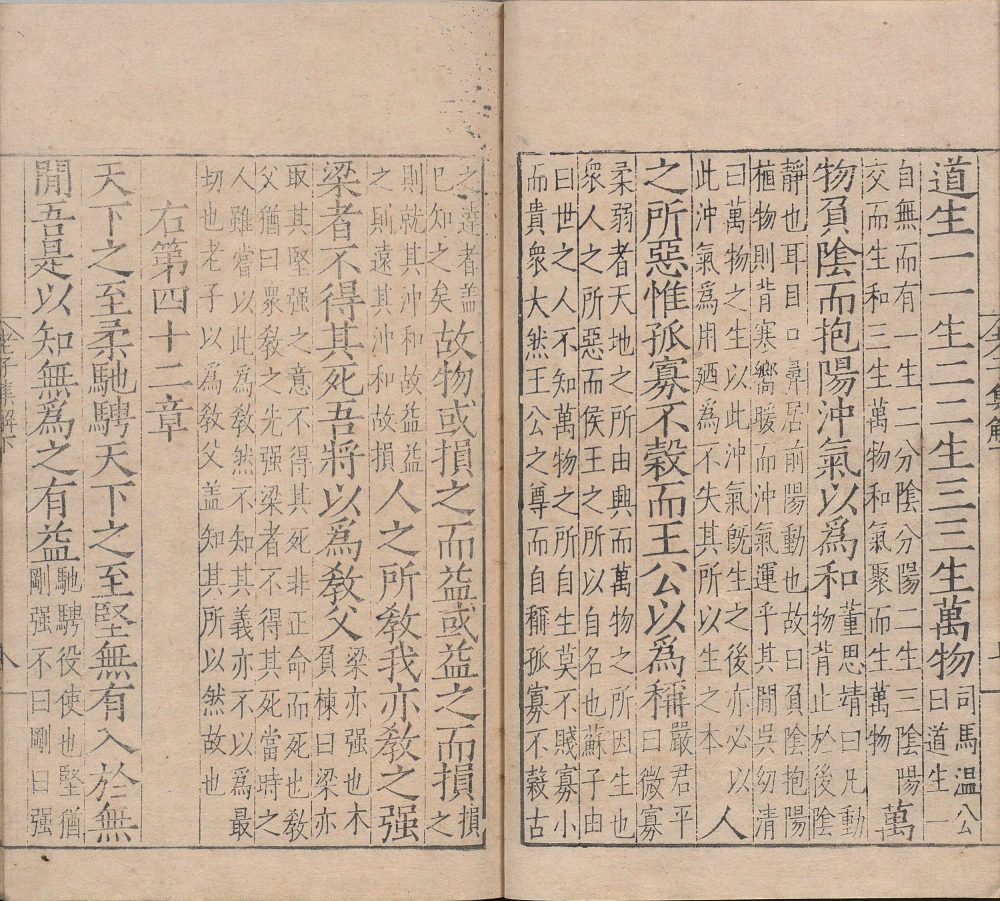 道生一一生二二生三三生萬物司馬溫公曰道生一
自無而有一生二分陰分陽二生三陰陽
交而生和三生萬物和氣聚而生萬物萬
物負陰而抱陽沖氣以爲和董思靖曰凡動物背止於後陰
靜也耳目口鼻居前陽動也故曰負陰抱陽
植物則背寒嚮暖而沖氣運乎其閒吳幼清
曰萬物之生以此沖氣旣生之後亦必以
此沖氣爲用廼爲不失其所以生之本人
之所惡惟孤寡不穀而王公以爲稱嚴君平曰微寡
柔弱者天地之所由興而萬物之所因生也
衆人之所惡而侯王之所以自名也蘇子由
曰世之人不知萬物之所自生莫不賤寡小
而貴衆大然王公之尊而自稱孤寡不穀古
之達者盖已知之矣故物或損之而益或益之而損損之
則就其沖和故益益之則遠其沖和故損人之所敎我亦敎之强
梁者不得其死吾將以爲敎父梁亦强也木負棟曰梁亦
取其堅强之意不得其死非正命而死也敎
父猶曰衆敎之先强梁者不得其死當時之
人雖嘗以此爲敎然不知其義亦不以爲最
切也老子以爲敎父盖知其所以然故也
右第四十二章
天下之至柔馳騁天下之至堅無有入於無
閒吾是以知無爲之有益馳騁役使也堅猶剛强不曰剛曰强
老子集解下
八